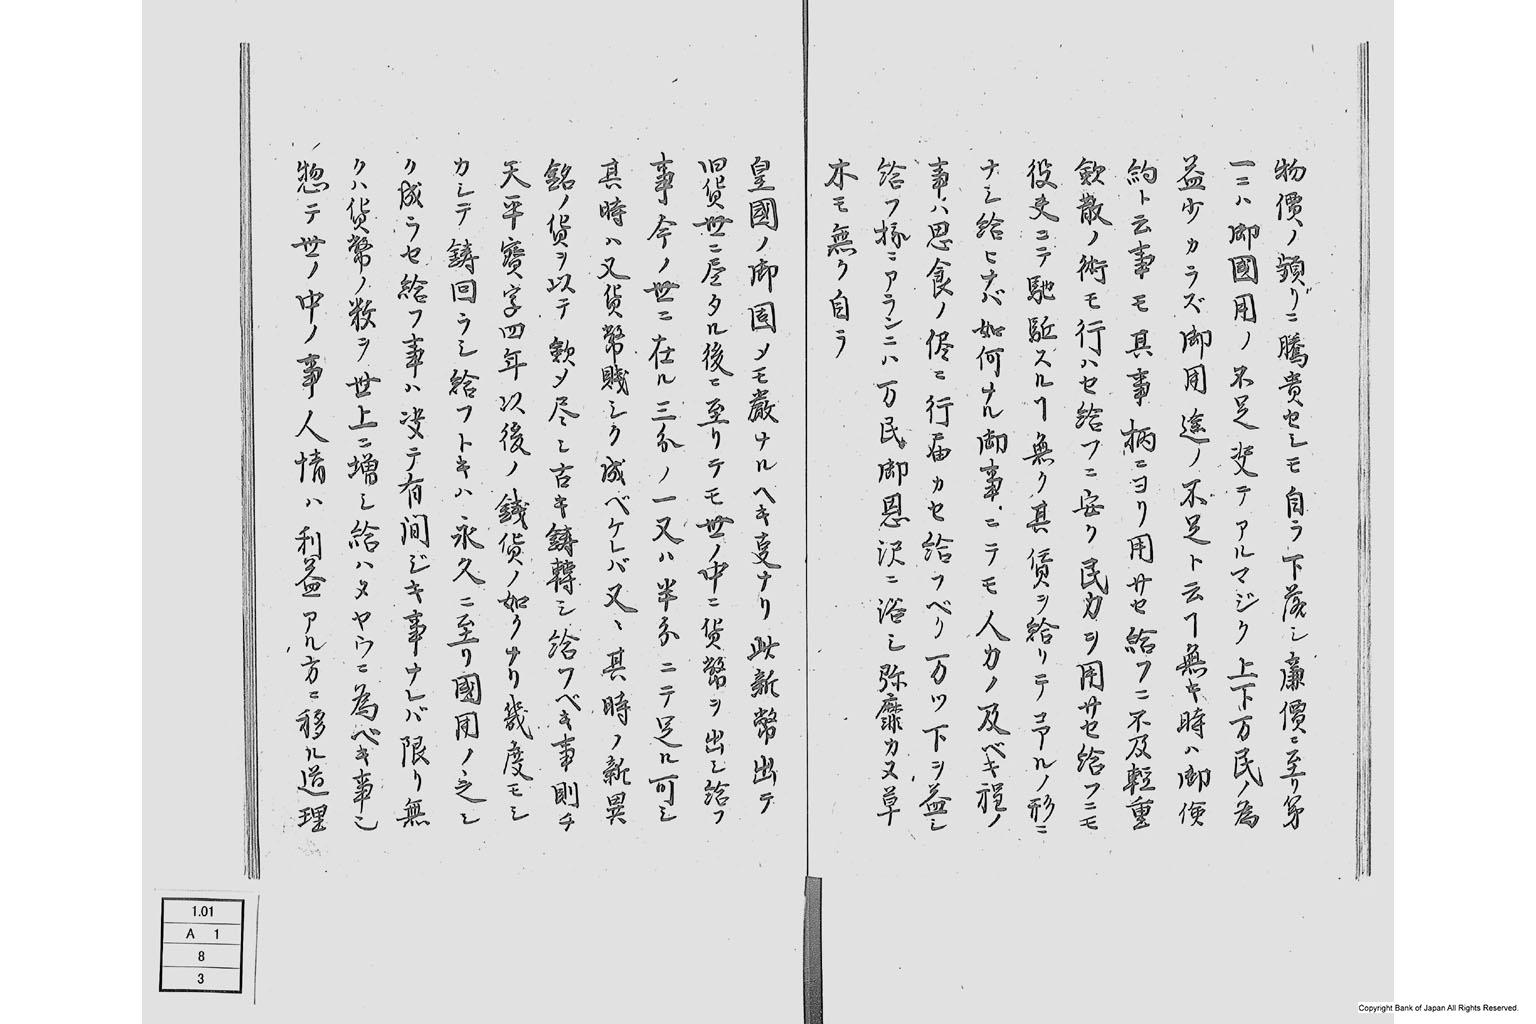 物價ノ頻リニ騰貴セシモ自ラ下落シ廉價ニ至リ第
一ニハ御國用ノ不足決テアルマジク上下万民ノ為
益少カラズ御用途ノ不足ト云ヿ無キ時ハ御倹
約ト云事モ其事柄ニヨリ用サセ給フニ不及輕重
歛散ノ術モ行ハセ給フニ安ク民力ヲ用サセ給フニモ
役夫ニテ馳駈スルヿ無ク其賃ヲ給リテコアルノ形ニ
ナシ給ヒナバ如何ナル御事ニテモ人力ノ及ベキ程ノ
事ハ思食ノ侭ニ行届カセ給フベク万ツ下ヲ益シ
給フ様ニアランニハ万民御恩沢ニ浴シ弥靡カヌ草
木モ無ク自ラ
皇國ノ御固メモ嚴ナルヘキ叓ナリ此新幣出テ
旧貨世ニ尽タル後ニ至リテモ世ノ中ニ貨幣ヲ出シ給フ
事今ノ世ニ在ル三分ノ一又ハ半分ニテ足ル可シ
其時ハ又貨幣賤シク成ベケレバ又〻其時ノ新異
銘ノ貨ヲ以テ歛メ尽シ古キ鑄轉シ給フベキ事則チ
天平寳字四年以後ノ錢貨ノ如クナリ幾度モシ
カシテ鑄回ラシ給フトキハ永久ニ至リ國用ノ乏シ
ク成ラセ給フ事ハ決テ有間ジキ事ナレバ限リ無
クハ貨幣ノ数ヲ世上ニ増シ給ハヌヤウニ為ベキ事也
惣テ世ノ中ノ事人情ハ利益アル方ニ移ル道理
1.01
A 1
8
3
Copyright Bank of Japan All Rights Reserved.